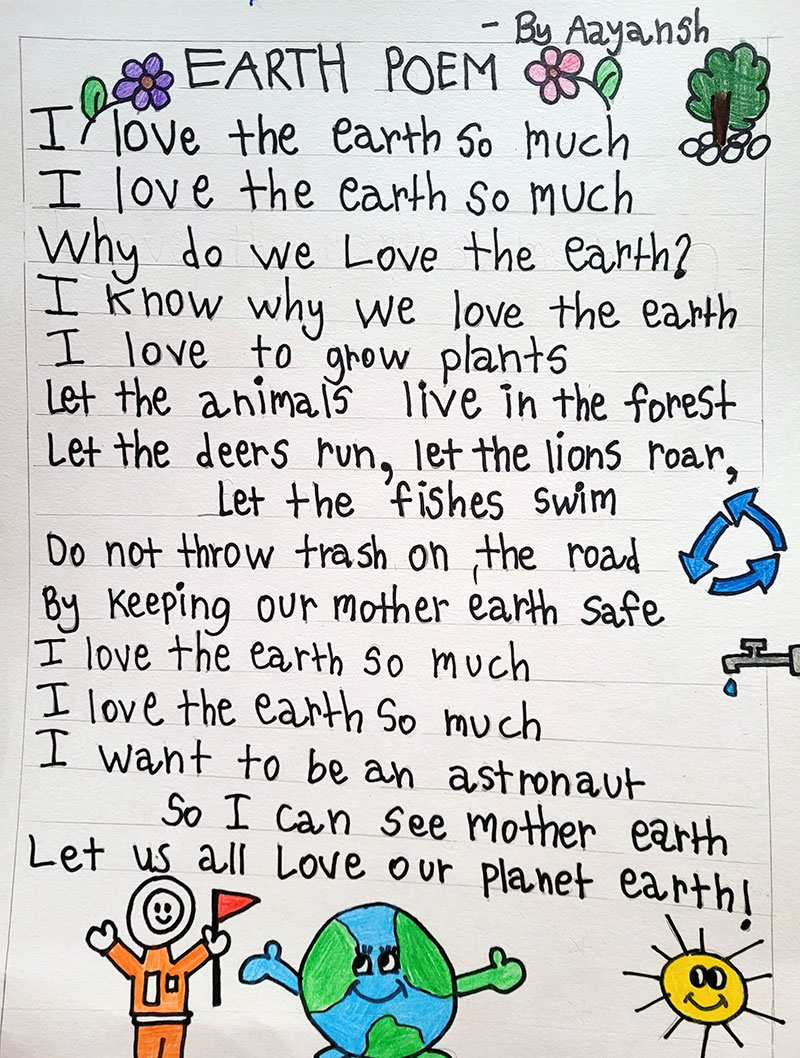 - By Aayansh
EARTH POEM
I love the earth so much
I love the earth so much
Why do we Love the earth?
I know why we love the earth
I love to grow plants
Let the animals live in the forest
Let the deers run, let the lions roar,
Let the fishes swim
Do not throw trash on the road
By keeping our mother earth safe
I love the earth so much
I love the earth so much
I want to be an astronaut
So I can see mother earth
Let us all Love our planet earth!